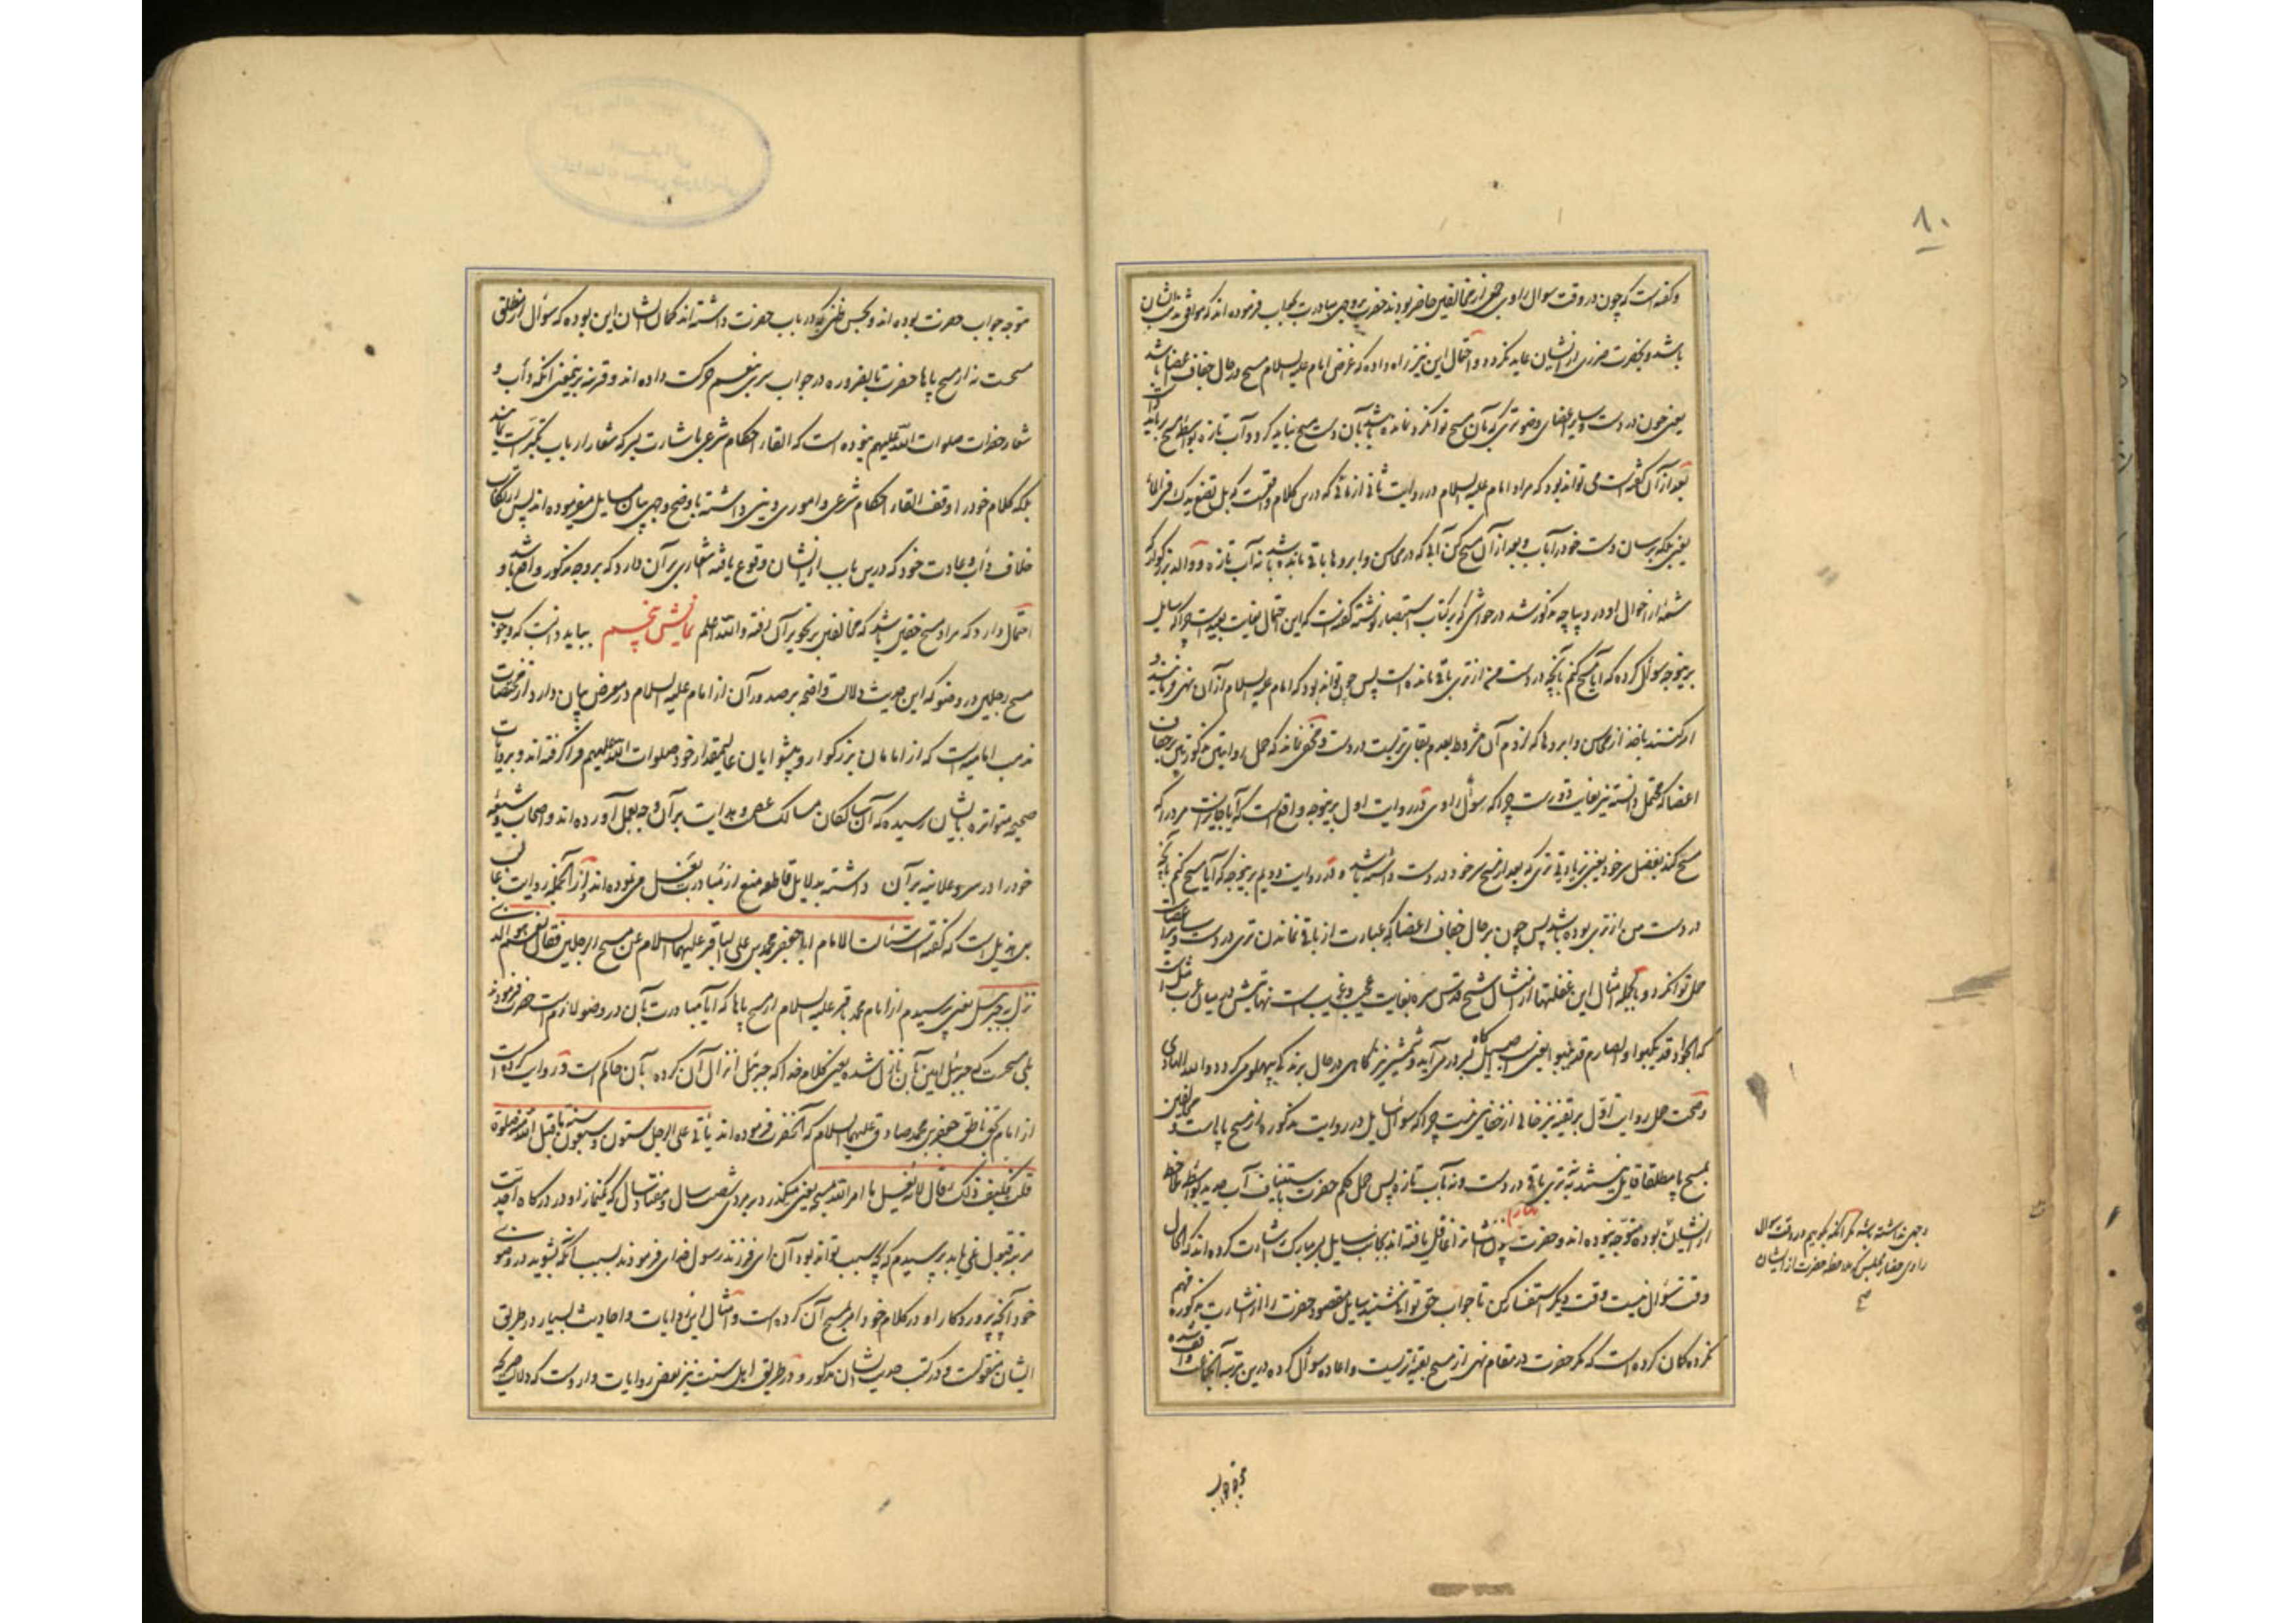 ۸۰
و گفته است که چون در وقت سوال راوی جمعی از مخالفین حاضر بودند حضرت بر وجهی مبادرت بجواب فرموده اند که موافق مذهب ایشان
باشد و بحضرت ضرری از ایشان عاید نگردد و احتمال این نیز راه داده که غرض امام علیه السلام مسح در حال جفاف اعضا باشد
یعنی چون در دست و سایر اعضای وضو تری که بآن مسح توانکرد نمانده باشد بآن دست مسح نباید کرد و آب تازه بواسطه مسح باید
بعد از آن گفته است می تواند بود که مراد امام علیه السلام در روایت ثانی از مائی که درین کلام واقعست که بل تضع یدک فی الماء
یعنی بلکه برسان دست خود را بآب و بعد از آن مسح کن آبی که در محاسن و ابروها باقی مانده باشد نه آب تازه و والد بزرگوار که
شمه از احوال او در دیباچه مذکور شد در حواشی که بر کتاب استبصار نوشته گفته است که این احتمال بغایت بعید است چرا که سایل
برینوجه سوال کرده که آیا مسح کنم بآنچه در دست من از تری باقی مانده است پس چون تواند بود که امام علیه السلام از آن نهی فرمایند و
امر کنند باخذ از محاسن و ابروها که لزوم آن مشروط بعدم بقای تریست در دست و مخفی نماند که حمل روایتین مذکورتین بر جفاف
اعضا که محتمل دانسته نیز بغایت دورست چرا که سوال راوی در روایت اول برینوجه واقع است که آیا جایز است مرد را که
مسح کند بفضل سر خود یعنی بزیادتی تری که بعد از مسح سر خود در دست داشته باشد و در روایت دویم برینوجه که آیا مسح کنم بآنچه
در دست من از تری بوده باشد پس چون بر حال جفاف اعضا که عبارت از باقی نماندن تری در دست و سایر اعضاست
حمل توانکرد و بالجمله امثال این غفلتها از امثال شیخ قدس سره بغایت عجیب و غریب است نهایتش در میان عرب مثل است
که الجواد قد یکبوا و الصارم قد ینبوا یعنی اسب اصیل گاه بسر در می آید و شمشیر تیز گاهی در حال برندگی پهلو می گردد و الله الهادی
و صحت حمل روایت اول بر تقیه نیز خالی از خفایی نیست چرا که سوال سایل در روایت مذکور از مسح پا است و مخالفین
بمسح پا مطلقا قایل نیستند نه بتری باقی در دست و نه بآب تازه پس حمل حکم حضرت باستیناف آب جدید بواسطه ملاحظه
از ایشان بوده متوجه نبوده اند و حضرت چون ایشانرا غافل یافته اند بجانب سایل بسر مبارک اشارت کرده اند که الحال
وقت سوال نیست وقت دیگر استفسار کن تا جواب حق توانی شنید سایل مقصود حضرت را از اشارت مذکوره فهم
نکرده گمان کرده است که مگر حضرت در مقام نهی از مسح بقیه تریست و اعاده سوال کرده درین مرتبه آنجماعت واقف شده
وجهی نداشته باشد مگر آنکه بگوییم در وقت سوال
راوی حضار مجلس که ملاحظه حضرت از ایشان
متوجه جواب
متوجه جواب حضرت بوده اند و بحسن ظنی که در باب حضرت داشته اند گمان ایشان این بوده که سوال از مطلق
مسحست نه از مسح پاها حضرت بالضروره در جواب سر بنعم حرکت داده اند و قرینه بر اینمعنی آنکه دأب و
شعار حضرات صلوات الله علیهم نبوده است که القاء احکام شرعی باشارت سر که شعار ارباب تکبر است نمایند
بلکه کلام خود را وقف القاء احکام شرعی و اموری دینی داشته باوضح وجهی بیان مسایل میفرموده اند پس ارتکاب
خلاف دأب و عادت خود که درین باب از ایشان وقوع یافته اشعاری بر آن دارد که بر وجه مذکور واقع باشد و
احتمال دارد که مراد مسح خفین باشد که مخالفین بر تجویز آن رفته و الله اعلم نمایش پنجم بباید دانست که وجوب
مسح رجلین در وضو که این حدیث دلالت واضحه بر صدور آن از امام علیه السلام در معرض بیان دارد از مختصات
مذهب امامیه است که از امامان بزرگوار و پیشوایان عالیمقدار خود صلوات الله علیهم فرا گرفته اند و بروایات
صحیحه متواتره بایشان رسیده که آن سالکان مسالک عصمت و هدایت بر آن وجه بعمل آورده اند و اصحاب و شیعه
خود را در سر و علانیه بر آن داشته بدلایل قاطعه منع از مبادرت بغسل می نموده اند از آنجمله روایت غالب
بن هذیل است که گفته است سئلت الامام ابا جعفر محمد بن علی الباقر علیهما السلام عن مسح الرجلین فقال نعم هو الذی
نزل به جبرئیل یعنی پرسیدم از امام محمد باقر علیه السلام از مسح پاها که آیا مبادرت بآن در وضو لازم است حضرت فرمودند
بلی مسحست که جبرئیل امین بآن نازل شده یعنی کلام خدا که جبرئیل انزال آن کرده بآن حاکم است و روایت کرده است
از امام بحق ناطق جعفر بن محمد صادق علیهما السلام که آنحضرت فرموده اند یأتی علی الرجل ستون و سبعون سنة ما قبل الله منه صلوة
قلت فکیف ذلک قال لانه یغسل ما امر الله بمسحه یعنی میگذرد بر مردی شصت سال و هفتاد سال که یکنماز او در درگاه احدیت
مرتبه قبول نمی یابد پرسیدم که بچه سبب تواند بود آن ای فرزند رسول خدای فرمودند بسبب آنکه بشوید در وضوی
خود آنچه پروردگار او در کلام خود امر بمسح آن کرده است و امثال این روایات و احادیث بسیار در طریق
ایشان منقولست و در کتب حدیث ایشان مذکور و در طریق اهل سنت نیز بعضی روایات وارد است که دلالت صریحه